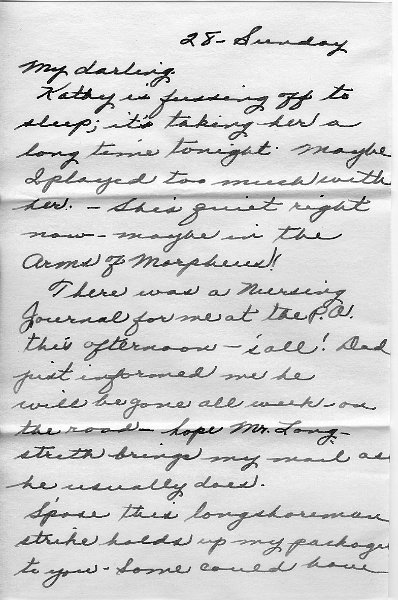 28- Sunday
My darling.
Kathy is fussing off to
sleep; it's taking her a
long time tonight. Maybe
I played too much with
her. - She's quiet right
now - maybe in the
Arms of Morpheus!!
There was a Nursing
Journal for me at the P.O.
this afternoon - s'all! Dad
just informed me he
will be gone all week - on
the road - hope Mr. Long-
streth brings my mail as
he usually does.
S'pose this longshoreman
strike holds up my package
to you - Some could have